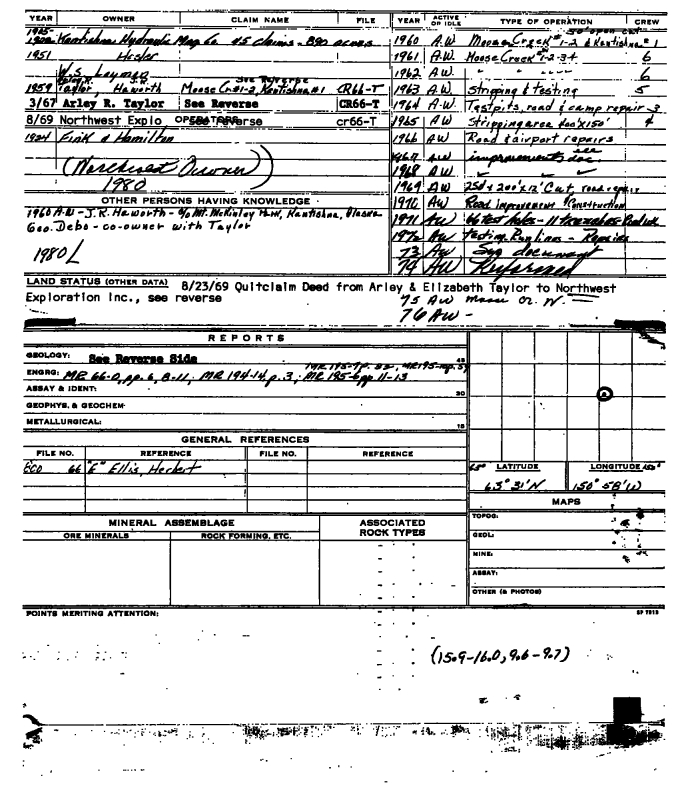 YEAR OWNER CLAIM NAME FILE YEAR ACTIVE OR IDLE TYPE OF OPERATION CREW
Kantishna Hydraulic Mng Co. 45 claims - 890 acres
1951
1959 Taylor, Haworth Moose Cr #1-2, Kantishna #1 CR66-T
See Reverse
3/67 Arley R. Taylor See Reverse CR66-T
8/69 Northwest Explo See Reverse cr66-T
1924 Fink & Hamilton
1980
OTHER PERSONS HAVING KNOWLEDGE
1960 A-W - J.R. Haworth - % Mt. McKinley Park, Kantishna, Alaska
Geo. Debo - co-owner with Taylor
1980 L
1960 A.W Moose Creek #1-2 & Kantishna #1
1961 A.W Moose Creek #1-2-3-4 6
1962 A.W " " " 6
1963 A.W Stripping & testing 5
1964 A.W Testpits, road & camp repair 3
1965 AW Stripping area 200'x150' 4
1966 AW Road & airport repairs
1967 AW improvements see doc.
1968 AW
1969 AW 250 x 200'x12' Cut, road repair
1970 AW Road improvement & Construction
1971 AW 66 test holes - 11 trenches
1972 AW testing, Runlines - Repairs
73 AW See document
74 AW
LAND STATUS (OTHER DATA) 8/23/69 Quitclaim Deed from Arley & Elizabeth Taylor to Northwest
Exploration Inc., see reverse
75 AW
76 AW -
REPORTS
GEOLOGY: See Reverse Side 45
ENGRG: MR 66-0, pp. 6, 8-11; MR 194-14, p. 3; MR 195-6 pp 11-13
ASSAY & IDENT: 30
GEOPHYS. & GEOCHEM:
METALLURGICAL: 15
GENERAL REFERENCES
FILE NO. REFERENCE FILE NO. REFERENCE
66 "E" Ellis, Herbert
LATITUDE LONGITUDE
63° 31' N 150° 58' W
MAPS
TOPOG:
GEOL:
MINE:
ASSAY:
OTHER (& PHOTOS)
MINERAL ASSEMBLAGE ASSOCIATED ROCK TYPES
ORE MINERALS ROCK FORMING, ETC.
POINTS MERITING ATTENTION:
(15.9-16.0, 9.6-9.7)